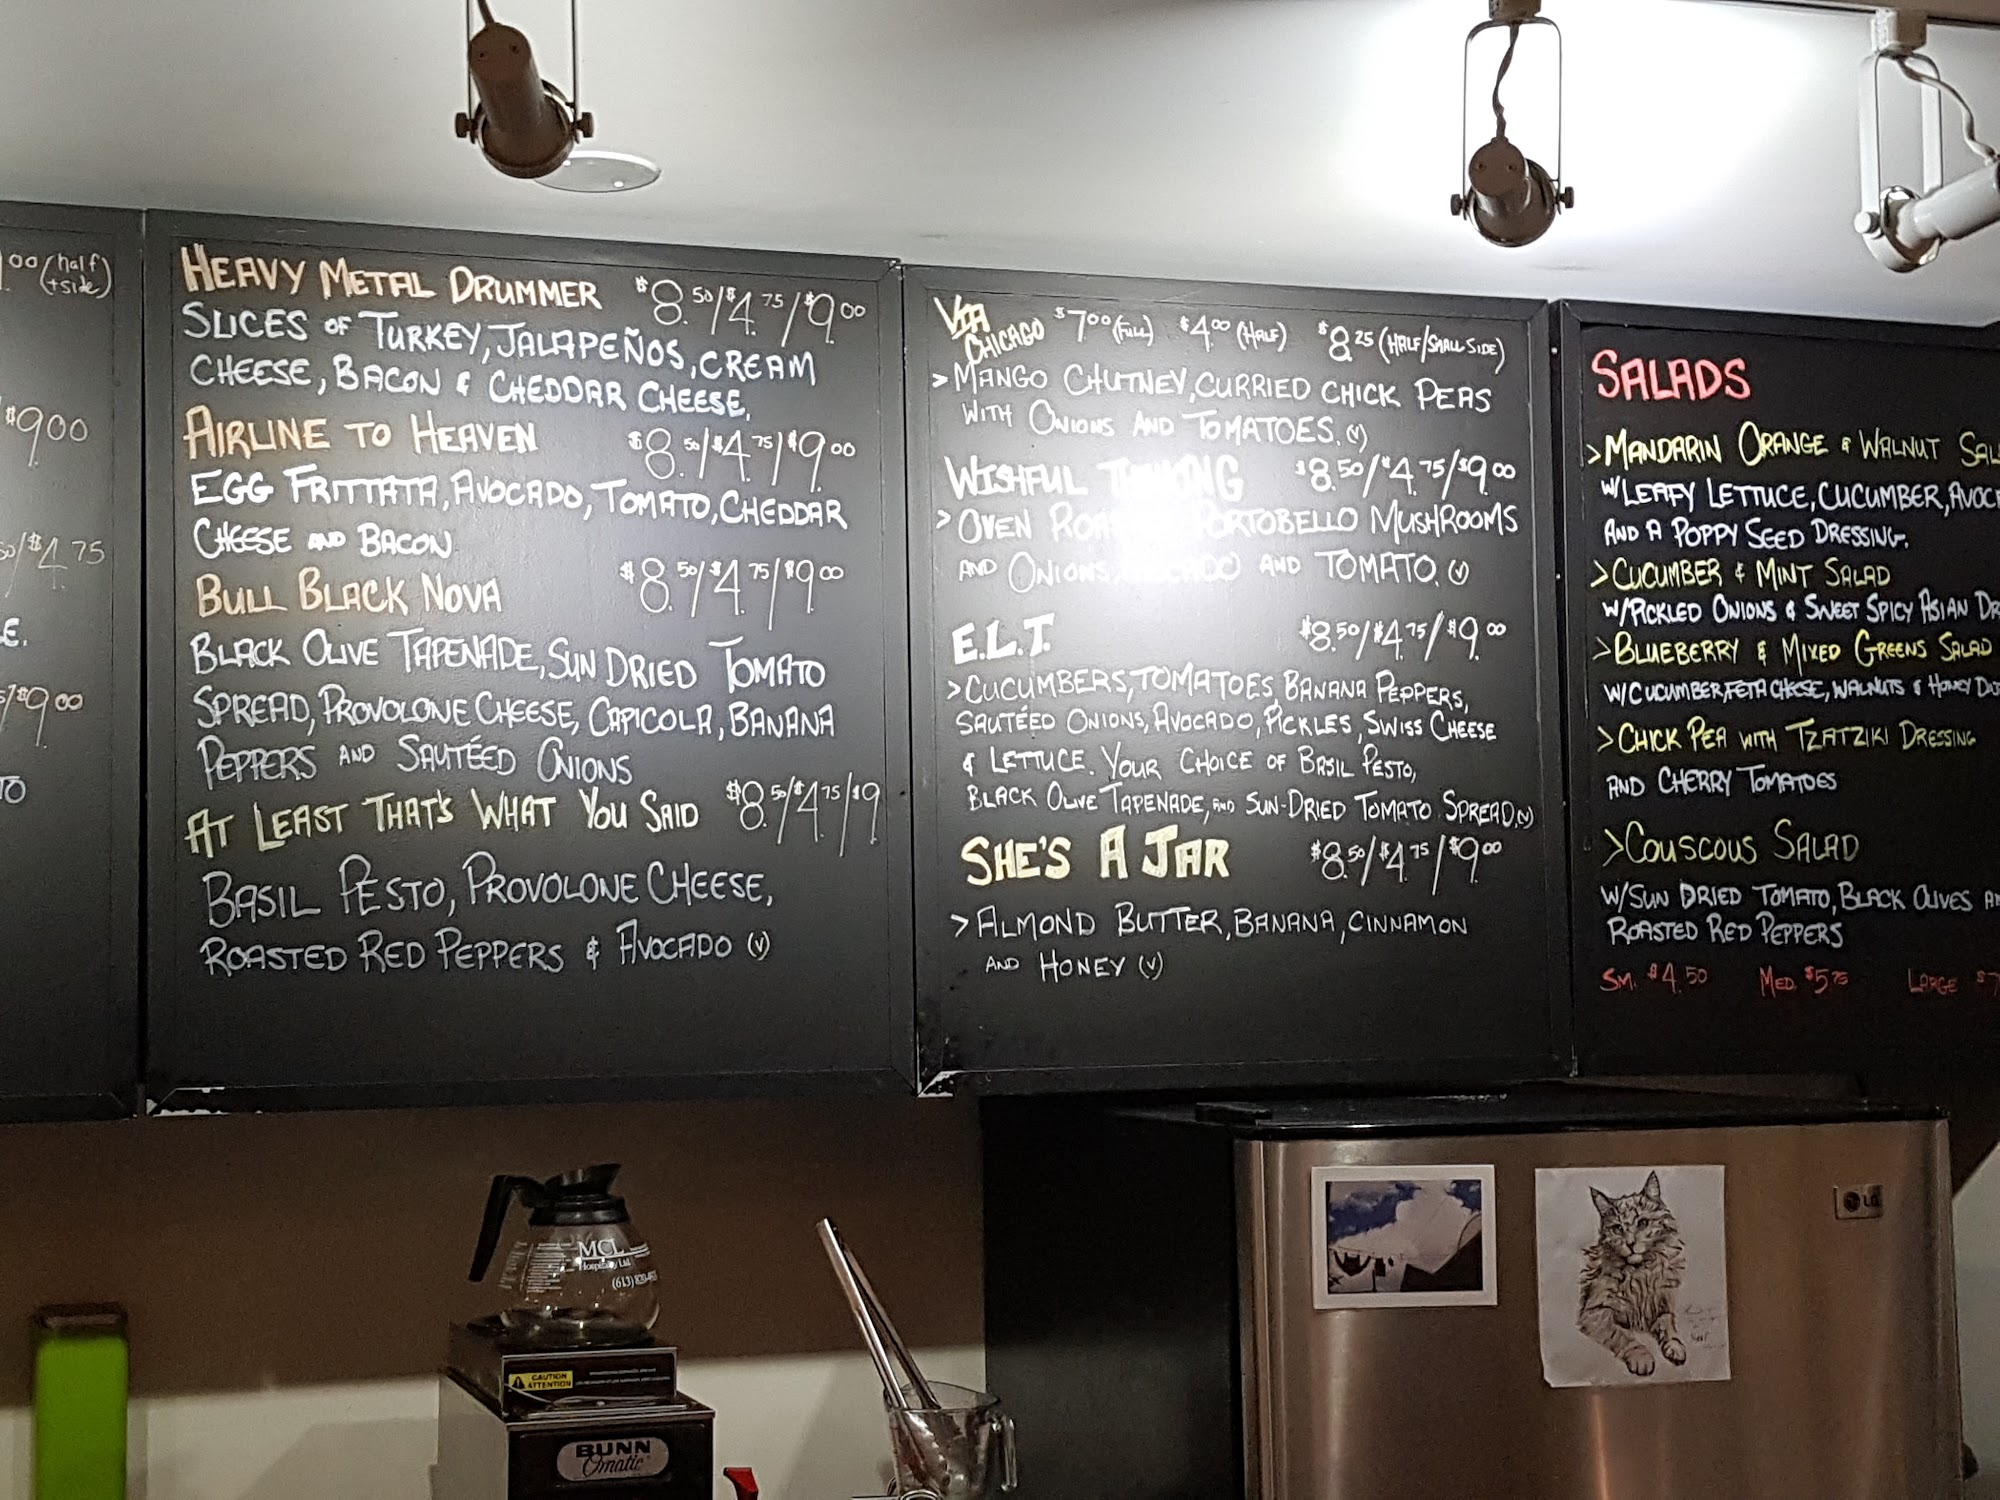 00 (half
+side)
$9.00
$4.75
E.
$9.00
TO
HEAVY METAL DRUMMER $8.50/$4.75/$9.00
SLICES OF TURKEY, JALAPEÑOS, CREAM
CHEESE, BACON & CHEDDAR CHEESE.
AIRLINE TO HEAVEN $8.50/$4.75/$9.00
EGG FRITTATA, AVOCADO, TOMATO, CHEDDAR
CHEESE AND BACON
BULL BLACK NOVA $8.50/$4.75/$9.00
BLACK OLIVE TAPENADE, SUN DRIED TOMATO
SPREAD, PROVOLONE CHEESE, CAPICOLA, BANANA
PEPPERS AND SAUTÉED ONIONS
AT LEAST THAT'S WHAT YOU SAID $8.50/$4.75/$9
BASIL PESTO, PROVOLONE CHEESE,
ROASTED RED PEPPERS & AVOCADO (V)
VIA CHICAGO $7.00 (FULL) $4.00 (HALF) $8.25 (HALF/SMALL SIDE)
> MANGO CHUTNEY, CURRIED CHICK PEAS
WITH ONIONS AND TOMATOES. (V)
WISHFUL $8.50/$4.75/$9.00
> OVEN PORTOBELLO MUSHROOMS
AND ONIONS, AND TOMATO. (V)
E.L.T. $8.50/$4.75/$9.00
> CUCUMBERS, TOMATOES, BANANA PEPPERS,
SAUTÉED ONIONS, AVOCADO, PICKLES, SWISS CHEESE
& LETTUCE. YOUR CHOICE OF BASIL PESTO,
BLACK OLIVE TAPENADE, AND SUN-DRIED TOMATO SPREAD. (V)
SHE'S A JAR $8.50/$4.75/$9.00
> ALMOND BUTTER, BANANA, CINNAMON
AND HONEY (V)
SALADS
> MANDARIN ORANGE & WALNUT SAL
W/LEAFY LETTUCE, CUCUMBER, AVOC
AND A POPPY SEED DRESSING.
> CUCUMBER & MINT SALAD
W/PICKLED ONIONS & SWEET SPICY ASIAN DR
> BLUEBERRY & MIXED GREENS SALAD
W/CUCUMBER, FETA CHEESE, WALNUTS & HONEY
> CHICK PEA WITH TZATZIKI DRESSING
AND CHERRY TOMATOES
> COUSCOUS SALAD
W/SUN DRIED TOMATO, BLACK OLIVES
ROASTED RED PEPPERS
SM. $4.50 MED. $5.75 LARGE $7
MCL
Hospitality Ltd.
(613)
CAUTION
ATTENTION
BUNN
Omatic
LG